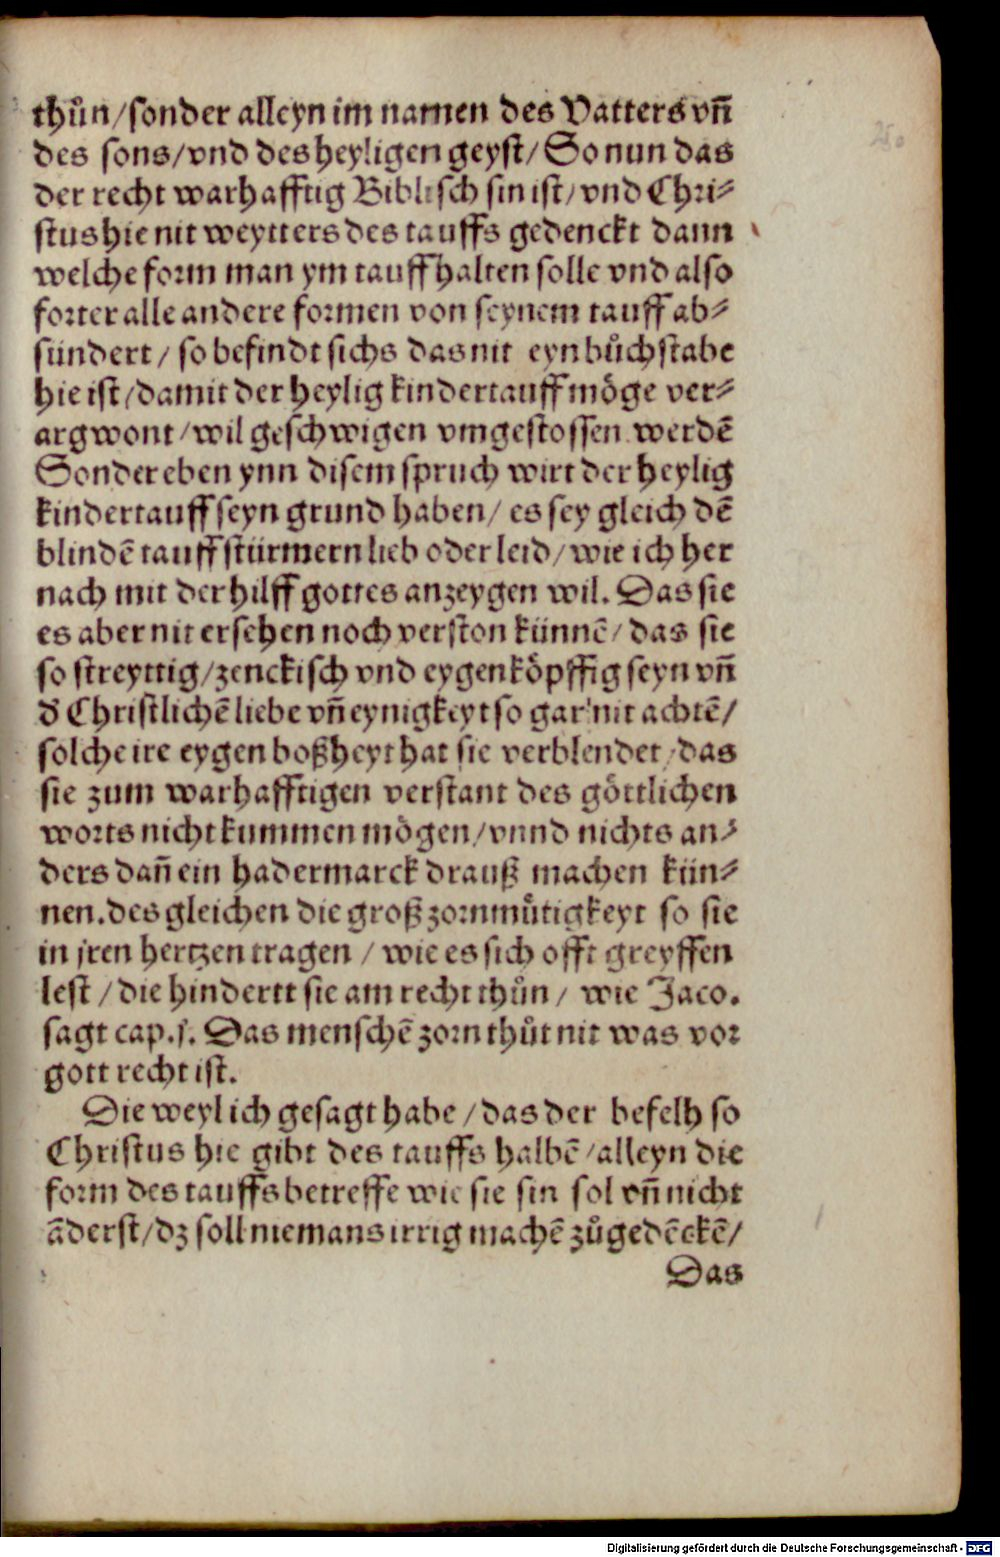 thůn/sonder alleyn im namen des Vatters vñ
des sons/vnd des heyligen geyst/So nun das
der recht warhafftig Biblisch sin ist/vnd Chri⸗
stus hie nit weytters des tauffs gedenckt dann
welche form man ym tauff halten solle vnd also
forter alle andere formen von seynem tauff ab⸗
sündert/ so befindt sichs das nit eyn bůchstabe
hie ist/damit der heylig kindertauff möge ver⸗
argwont/wil geschwigen vmgestossen werdē
Sonder eben ynn disem spruch wirt der heylig
kindertauff seyn grund haben/ es sey gleich dē
blindē tauffstürmern lieb oder leid/wie ich her
nach mit der hilff gottes anzeygen wil. Das sie
es aber nit ersehen noch verston künnē/ das sie
so streyttig/zenckisch vnd eygenköpffig seyn vñ
d̕ Christlichē liebe vñ eynigkeyt so gar nit achtē/
solche ire eygen boßheyt hat sie verblendet/das
sie zum warhafftigen verstant des göttlichen
worts nicht kummen mögen/vnnd nichts an⸗
ders dañ ein hadermarck drauß machen kün⸗
nen.des gleichen die groß zornmütigkeyt so sie
in jren hertzen tragen / wie es sich offt greyffen
lest / die hindertt sie am recht thůn/ wie Jaco.
sagt cap.j. Das menschē zorn thůt nit was vor
gott recht ist.
Die weyl ich gesagt habe/das der befelh so
Christus hie gibt des tauffs halbē/alleyn die
form des tauffs betreffe wie sie sin sol vñ nicht
āderst/dz soll niemans irrig machē zůgedēckē/
Das
Digitalisierung gefördert durch die Deutsche Forschungsgemeinschaft - DFG